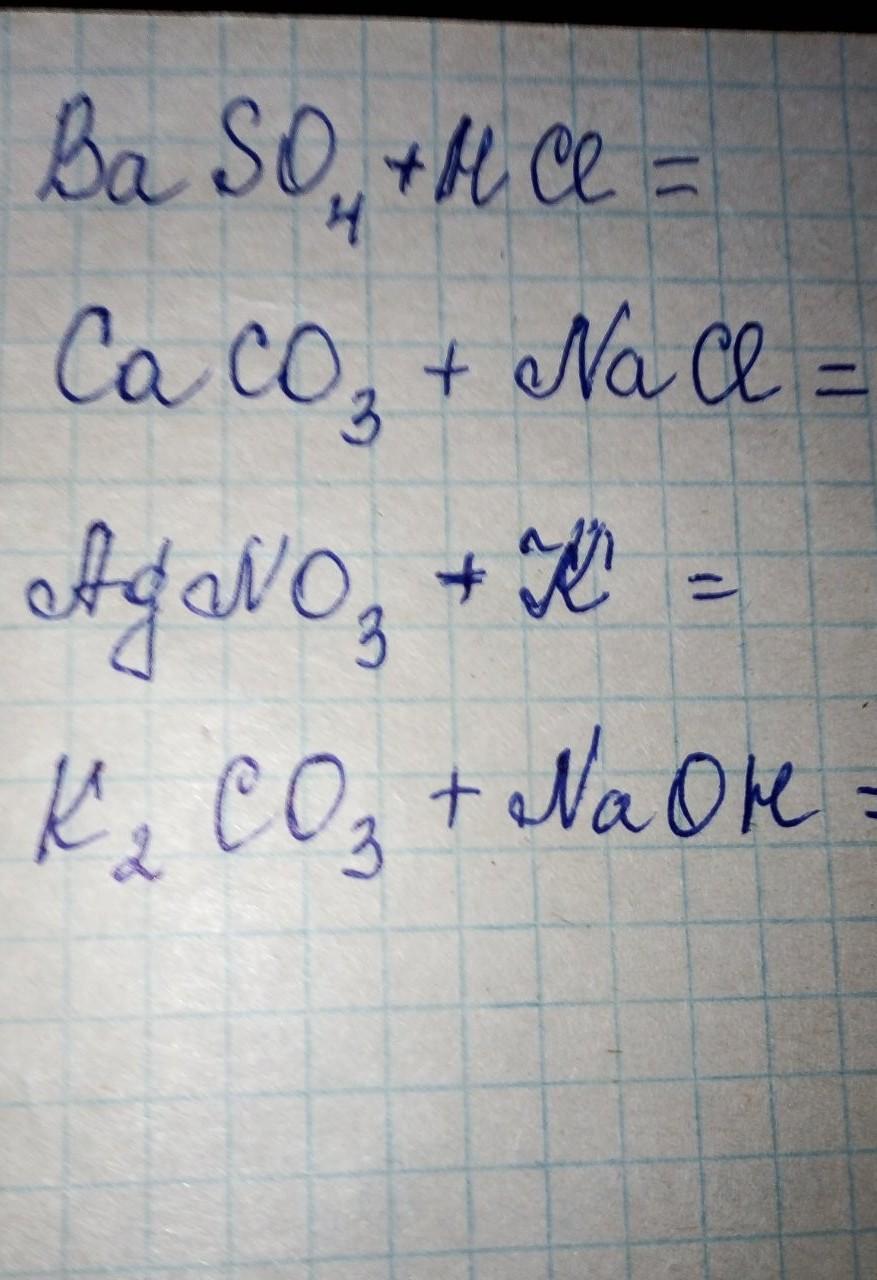 BaSO₄ + HCl =
CaCO₃ + NaCl =
AgNO₃ + K =
K₂CO₃ + NaOH =